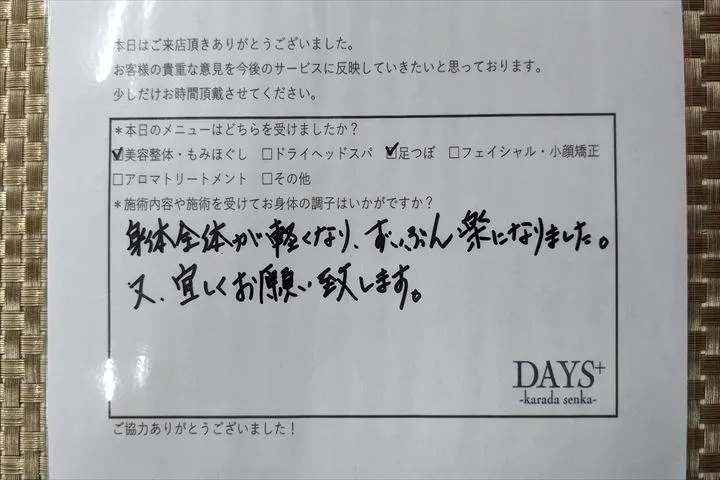 本日はご来店頂きありがとうございました。
お客様の貴重な意見を今後のサービスに反映していきたいと思っております。
少しだけお時間頂戴させてください。
＊本日のメニューはどちらを受けましたか？
☑美容整体・もみほぐし □ドライヘッドスパ ☑足つぼ □フェイシャル・小顔矯正
□アロマトリートメント □その他
＊施術内容や施術を受けてお身体の調子はいかがですか？
身体全体が軽くなり、ずいぶん楽になりました。
又、宜しくお願い致します。
DAYS+
-karada senka-
ご協力ありがとうございました！